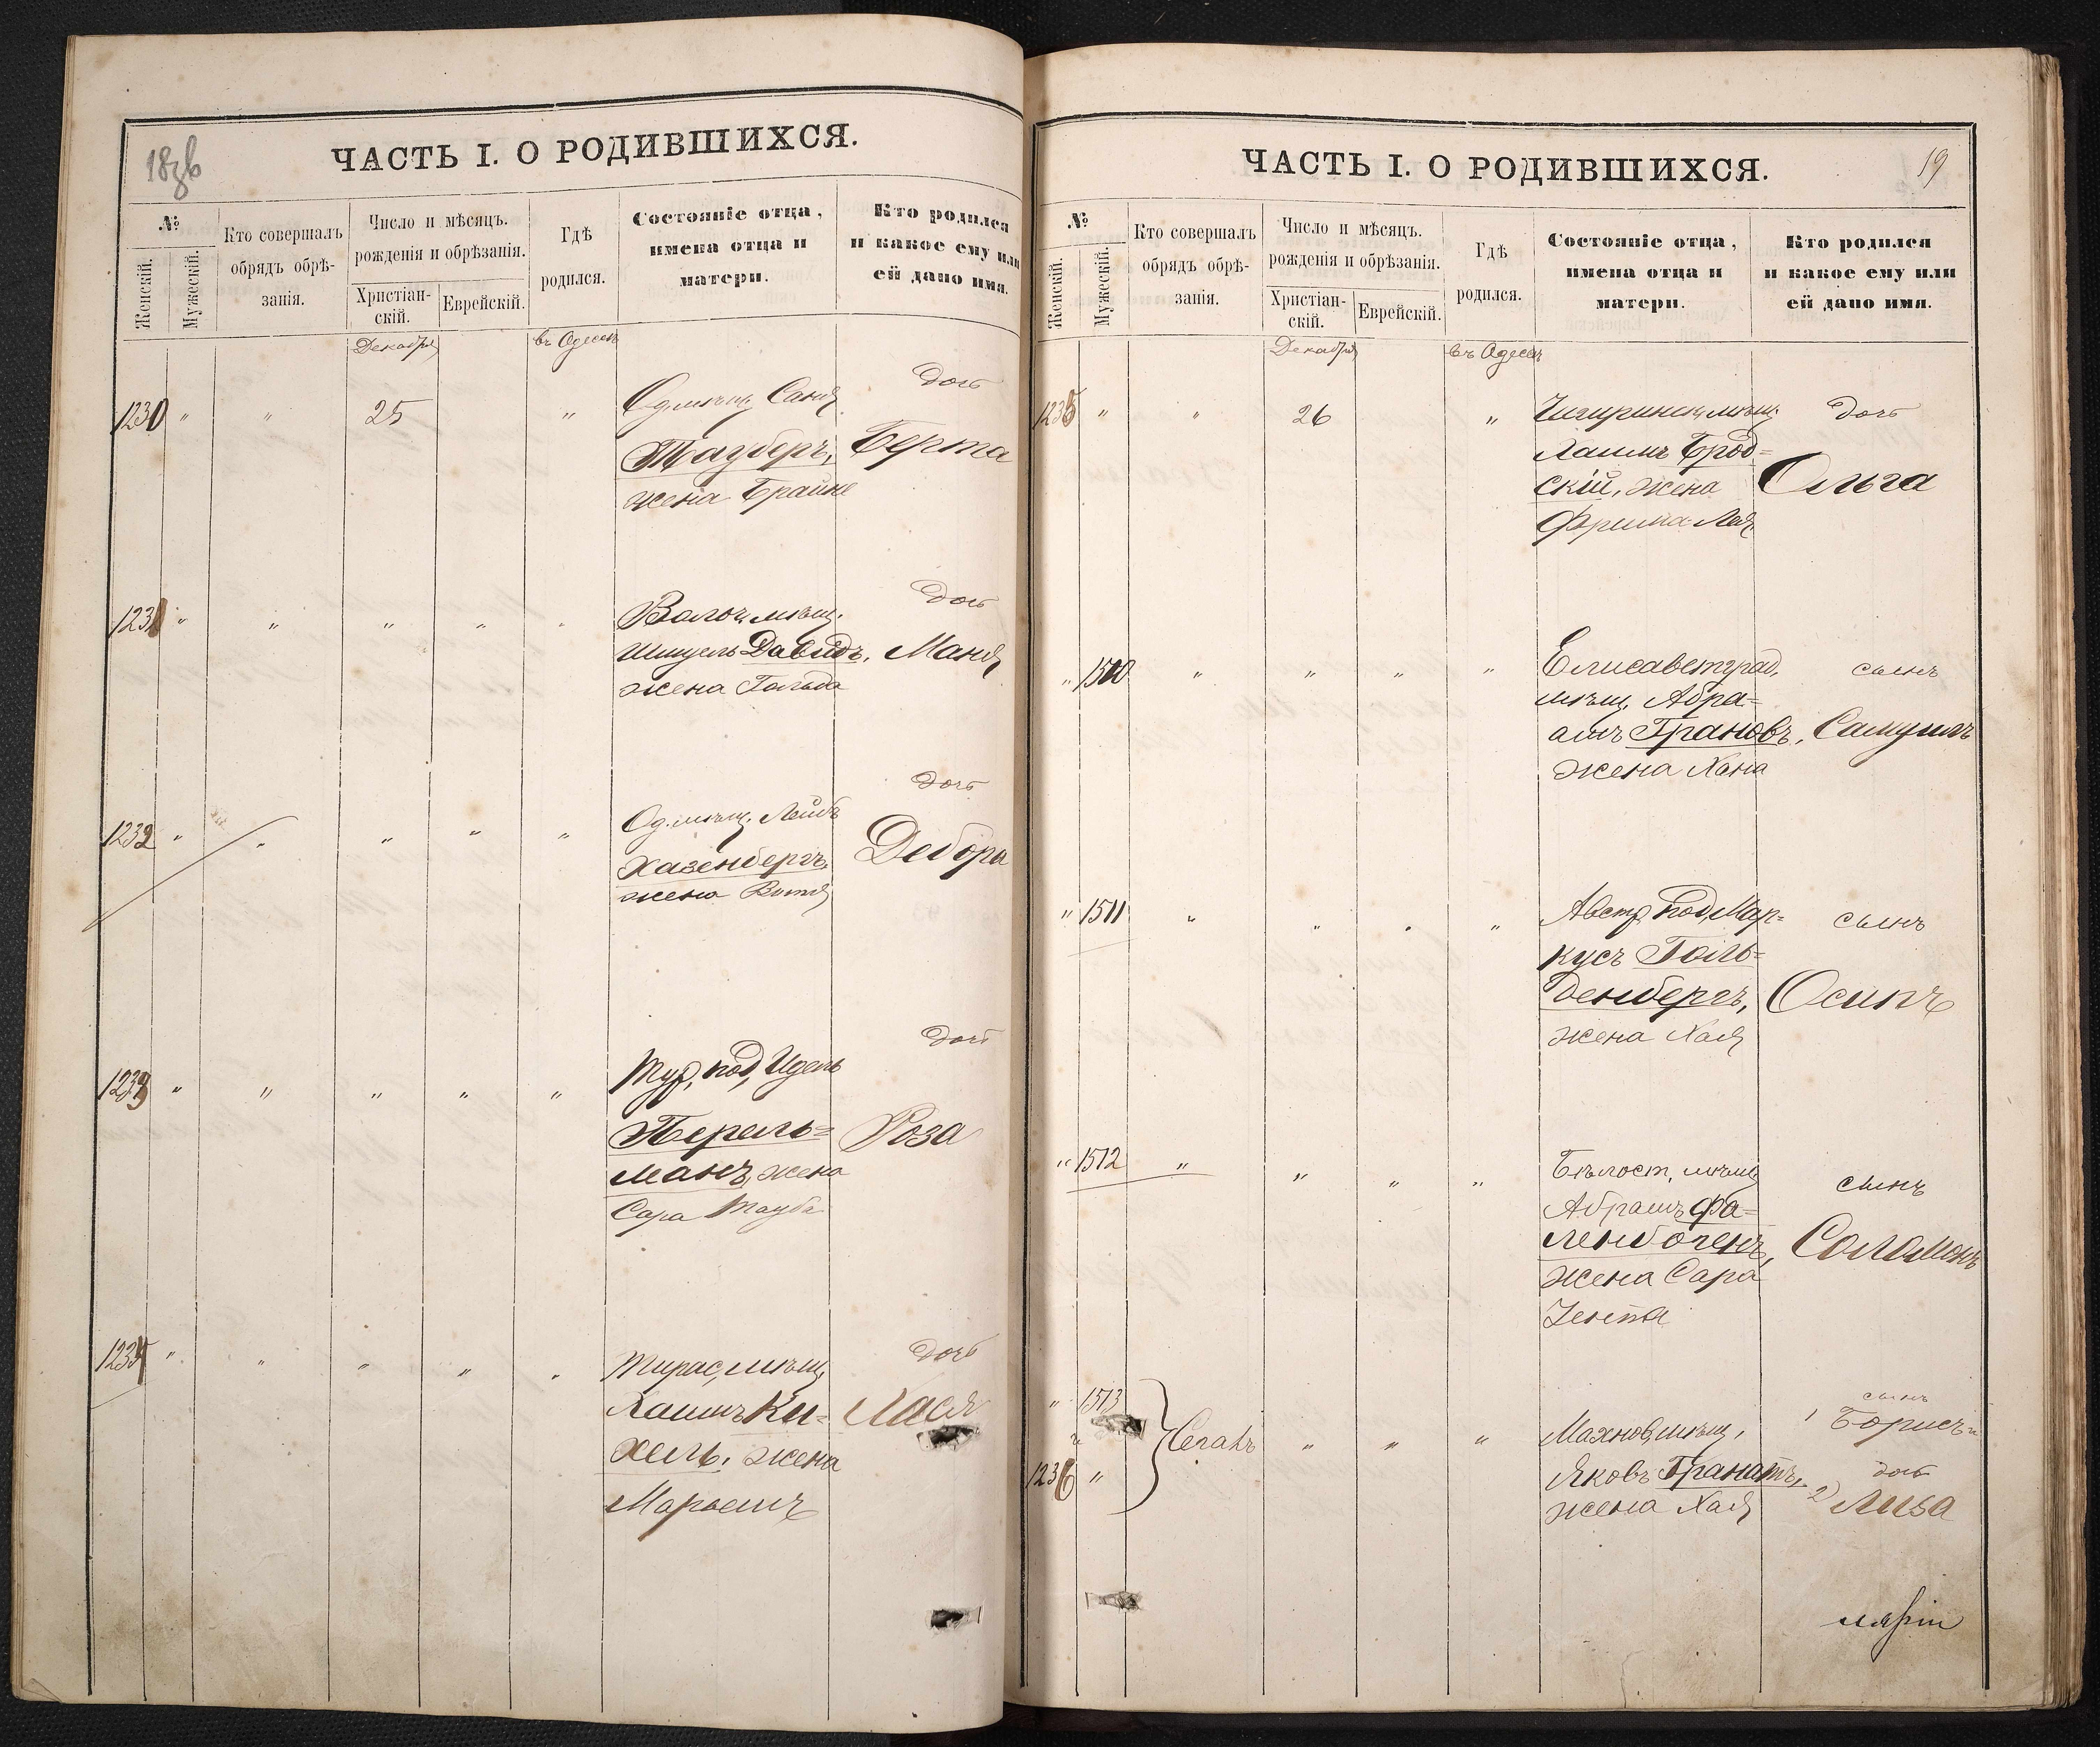 18зв
ЧАСТЬ I. О РОДИВШИХСЯ.
№
Женскій.
Мужескій.
Кто совершалъ
обрядъ обрѣ-
занія.
Число и мѣсяцъ.
рожденія и обрѣзанія.
Христіан-
скій.
Еврейскій.
Гдѣ
родился.
Состояніе отца,
имена отца и
матери.
Кто родился
и какое ему или
ей дано имя.
Декабря
въ Одессѣ
1230 " " 25 "
Од. мѣщ. Саня
Тауберъ,
жена Брайне
дочь
Берта
1231 " " " " "
Волоч. мѣщ.
Шмуль Давидъ,
жена Гольда
дочь
Маня
1232 " " " " "
Од. мѣщ. Лейбъ
Хазенбергъ,
жена Витя
дочь
Дебора
1233 " " " " "
Тур. под. Идель
Перель=
манъ, жена
Сара Тауба
дочь
Роза
1234 " " " " "
Тирас. мѣщ.
Хаимъ Ки=
хель, жена
Марьемъ
дочь
Хася
ЧАСТЬ I. О РОДИВШИХСЯ.
19
№
Женскій.
Мужескій.
Кто совершалъ
обрядъ обрѣ-
занія.
Число и мѣсяцъ.
рожденія и обрѣзанія.
Христіан-
скій.
Еврейскій.
Гдѣ
родился.
Состояніе отца,
имена отца и
матери.
Кто родился
и какое ему или
ей дано имя.
Декабря
въ Одессѣ
1235 " " 26 "
Чигиринск. мѣщ.
Хаимъ Брод=
скій, жена
Фрима Лея
дочь
Ольга
" 1510 " " " "
Елисаветград.
мѣщ. Абра=
амъ Грановъ,
жена Хана
сынъ
Самуилъ
" 1511 " " " "
Австр. под. Мар=
кусъ Голь=
денбергъ,
жена Хая
сынъ
Осипъ
" 1512 " " " "
Бѣлост. мѣщ.
Абрамъ Фа=
ленбогенъ,
жена Сара
Зента
сынъ
Соломонъ
" 1513
"
1236 "
Сегалъ " " "
Махнов. мѣщ.
Яковъ Гранатъ,
жена Хая
сынъ
1 Борисъ и
дочь
2) Лиза